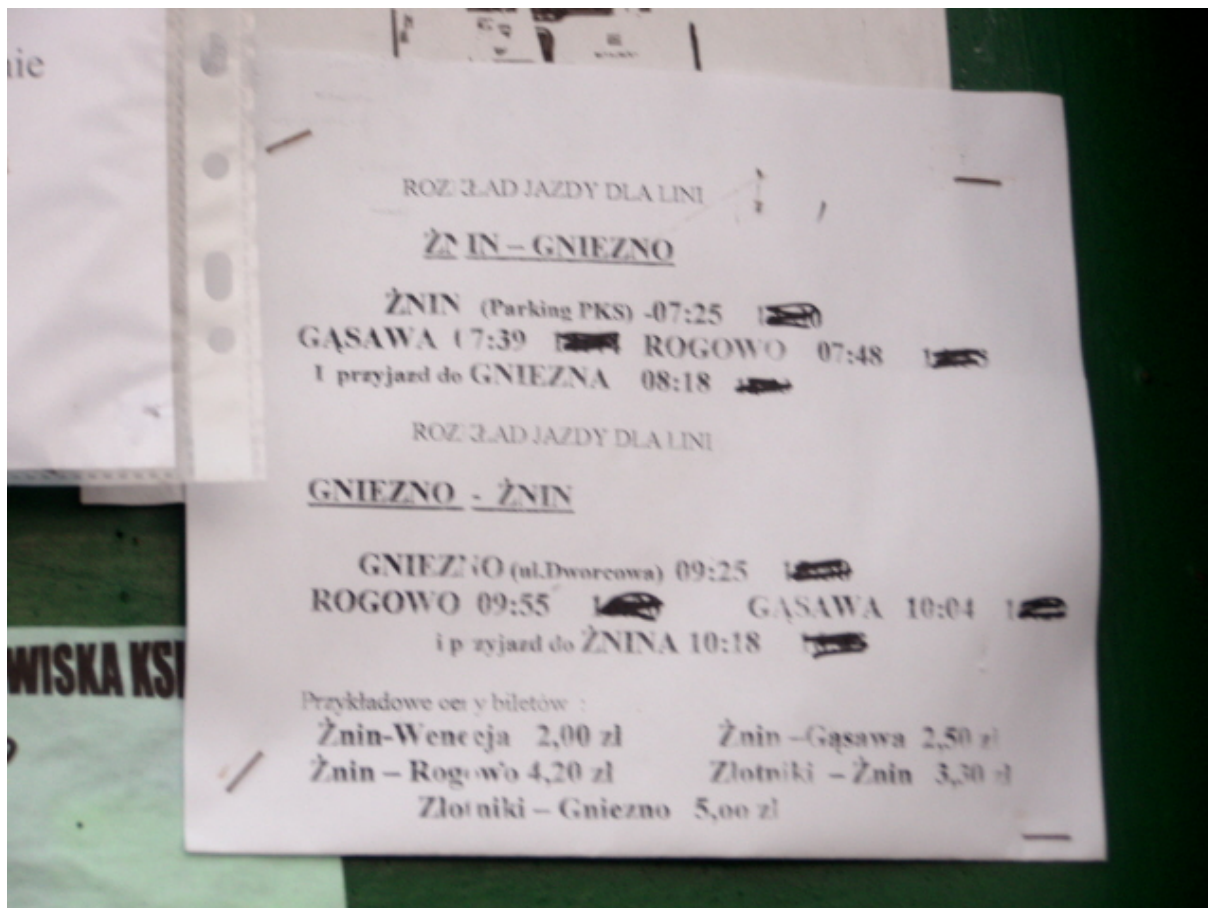 nie
ROZKŁAD JAZDY DLA LINI
ŻNIN – GNIEZNO
ŻNIN (Parking PKS) -07:25
GĄSAWA 07:39 ROGOWO 07:48
I przyjazd do GNIEZNA 08:18
ROZKŁAD JAZDY DLA LINI
GNIEZNO - ŻNIN
GNIEZNO (ul.Dworcowa) 09:25
ROGOWO 09:55 GĄSAWA 10:04
i przyjazd do ŻNINA 10:18
Przykładowe ceny biletów :
Żnin-Wenecja 2,00 zł Żnin –Gąsawa 2,50 zł
Żnin – Rogowo 4,20 zł Złotniki – Żnin 3,30 zł
Złotniki – Gniezno 5,00 zł
WISKA KSI